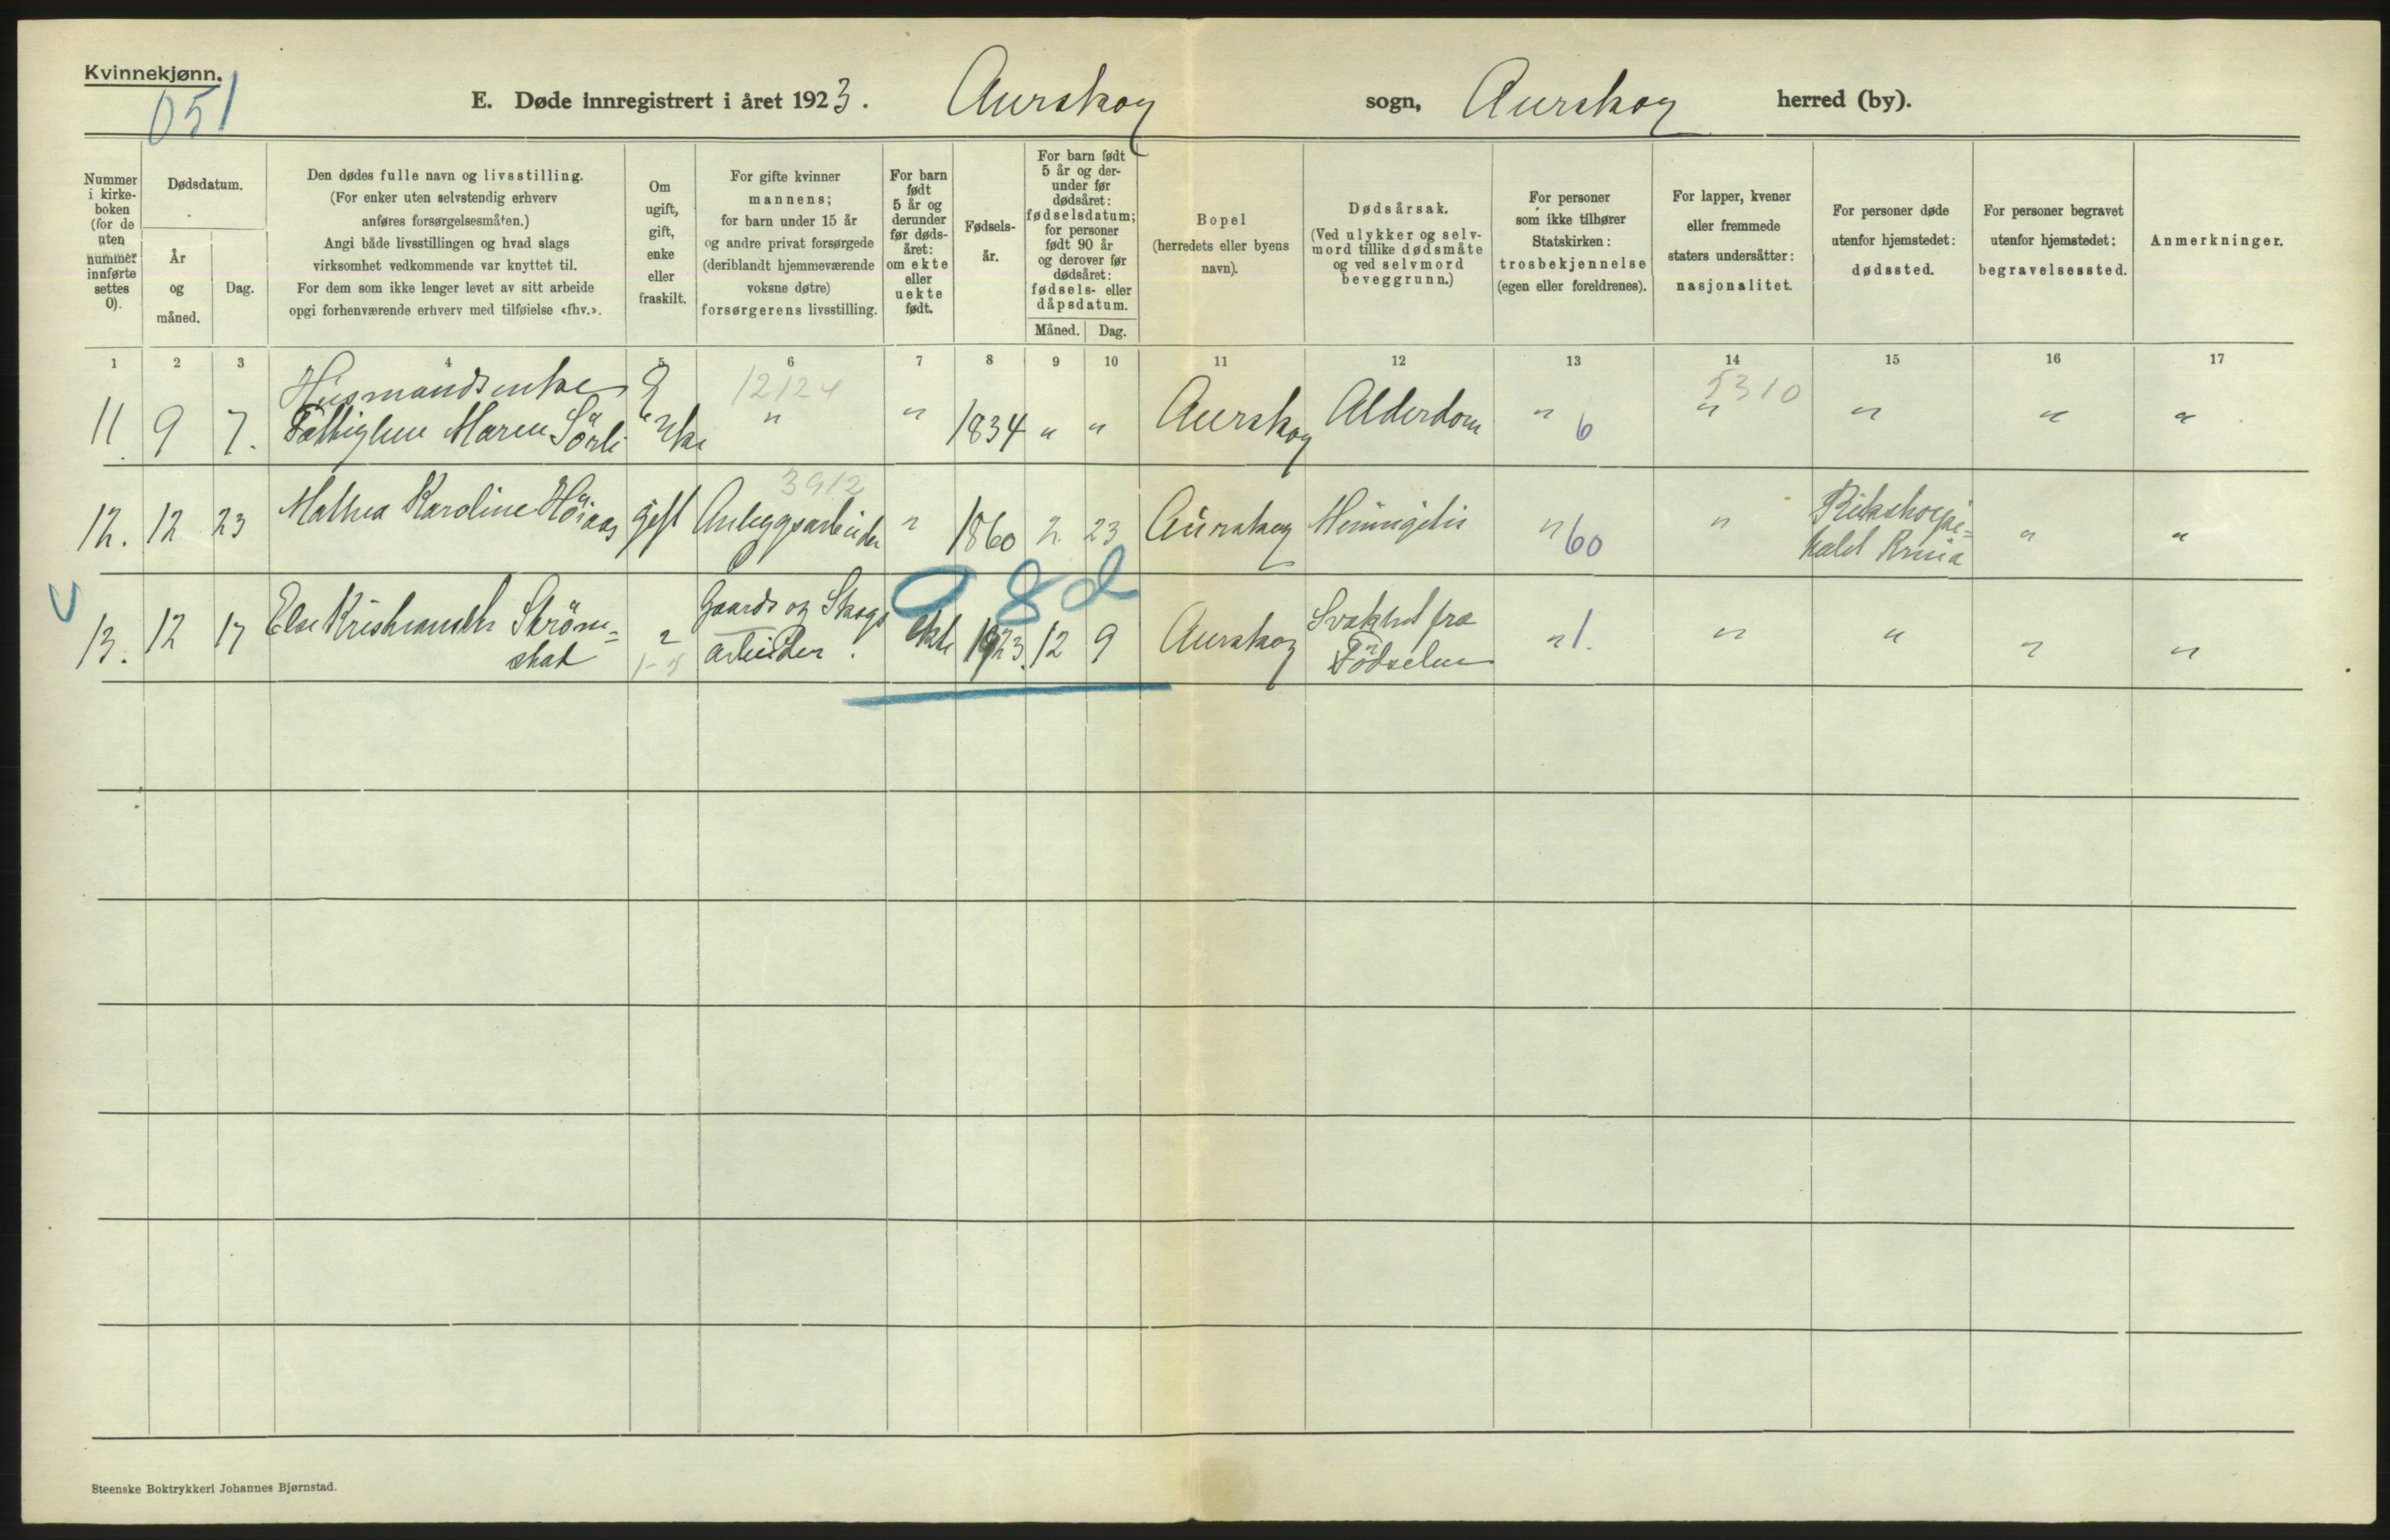 Kvinnekjønn.
051
E. Døde innregistrert i året 1923. Aurskog sogn, Aurskog herred (by).
Nummer i kirke-boken (for de uten nummer innførte settes 0).
Dødsdatum.
År og måned.
Dag.
Den dødes fulle navn og livsstilling.
(For enker uten selvstendig erhverv
anføres forsørgelsesmåten.)
Angi både livsstillingen og hvad slags
virksomhet vedkommende var knyttet til.
For dem som ikke lenger levet av sitt arbeide
opgi forhenværende erhverv med tilføielse «fhv.».
Om
ugift,
gift,
enke
eller
fraskilt.
For gifte kvinner
mannens;
for barn under 15 år
og andre privat forsørgede
(deriblandt hjemmeværende
voksne døtre)
forsørgerens livsstilling.
For barn
født
5 år og
derunder
før døds-
året:
om ekte
eller
uekte
født.
Fødsels-
år.
For barn født
5 år og der-
under før
dødsåret:
fødselsdatum;
for personer
født 90 år
og derover før
dødsåret:
fødsels- eller
dåpsdatum.
Måned. Dag.
Bopel
(herredets eller byens
navn).
Dødsårsak.
(Ved ulykker og selv-
mord tillike dødsmåte
og ved selvmord
beveggrunn.)
For personer
som ikke tilhører
Statskirken:
trosbekjennelse
(egen eller foreldrenes).
For lapper, kvener
eller fremmede
staters undersåtter:
nasjonalitet.
For personer døde
utenfor hjemstedet:
dødssted.
For personer begravet
utenfor hjemstedet:
begravelsessted.
Anmerkninger.
1 2 3 4 5 6 7 8 9 10 11 12 13 14 15 16 17
Husmandsenke 12124 5310
11 9 7. Maren Sörli Enke " " 1834 " " Aurskog Alderdom " 6 " " " "
3912
12. 12 23 Mathea Karoline Höiaas gift Anleggsarbeider " 1860 2 23 Aurskog Meningitis " 60 " " "
98d
Gaards og Skogs Svakhet fra
13. 12 17 Else Ström= ekte 1923. 12 9 Aurskog " 1. " " " "
skat arbeider. Födselen
Steenske Boktrykkeri Johannes Bjørnstad.